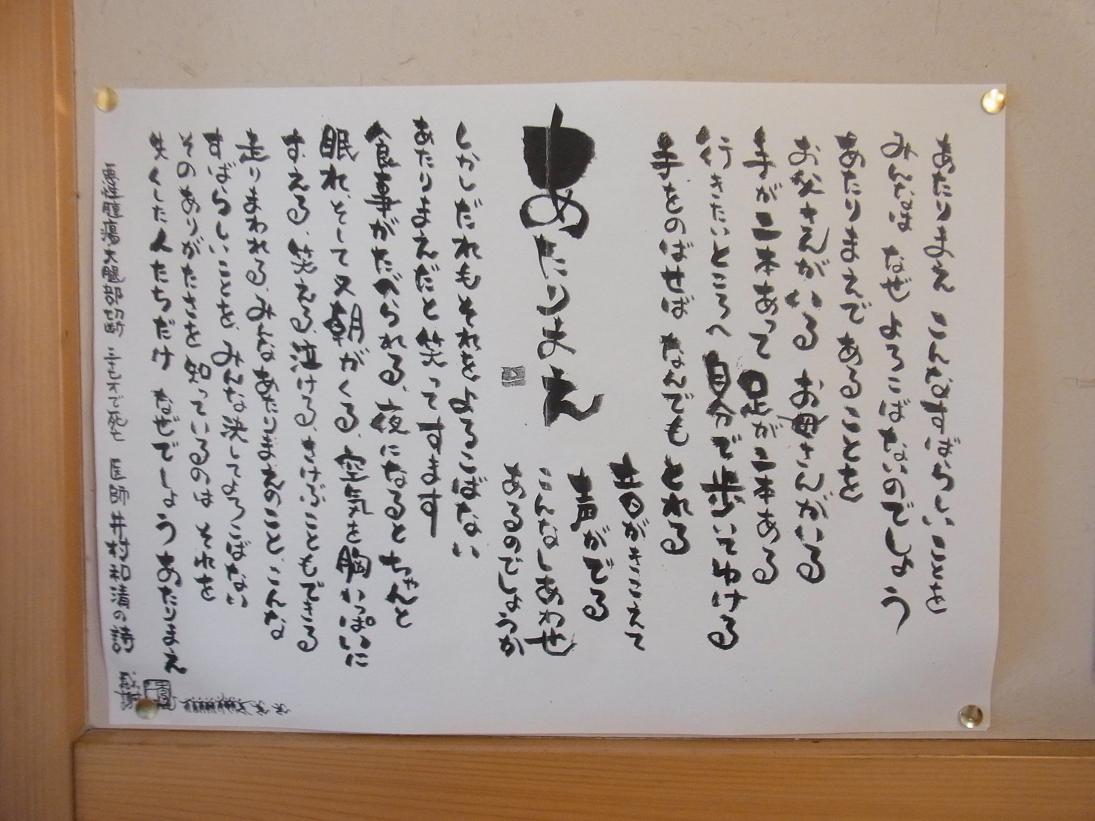 あたりまえ こんなすばらしいことを
みんなは なぜ よろこばないのでしょう
あたりまえで あることを
お父さんがいる お母さんがいる
手が二本あって 足が二本ある
行きたいところへ 自分で歩いてゆける
手をのばせば なんでも とれる
音がきこえて
声がでる
こんなしあわせ
あるのでしょうか
あたりまえ
しかしだれもそれをよろこばない
あたりまえだと笑ってすます
食事がたべられる、夜になるとちゃんと
眠れ、そして又朝がくる、空気を胸いっぱいに
すえる、笑える、泣ける、さけぶこともできる
走りまわれる、みんなあたりまえのこと、こんな
すばらしいことを、みんな決してよろこばない
そのありがたさを知っているのは それを
失くした人たちだけ なぜでしょう あたりまえ
悪性腫瘍大腿部切断 三十一才で死亡 医師 井村和清の詩